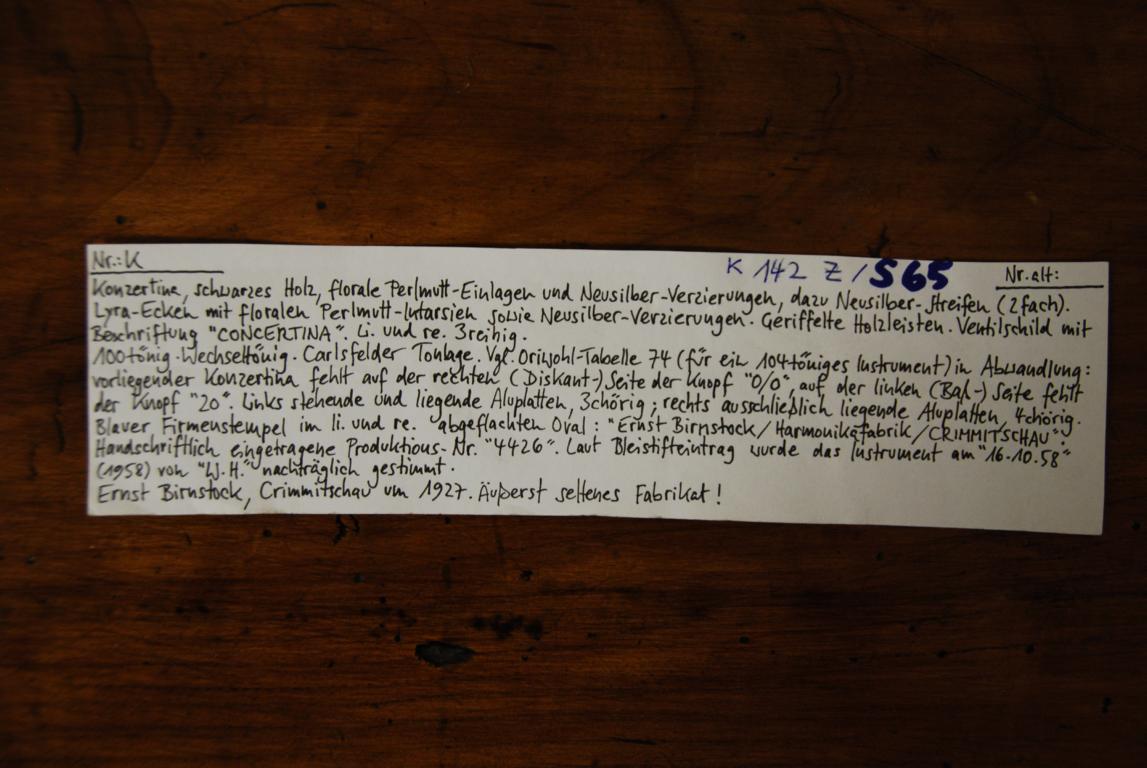 Nr.: K
K 142 Z / S65
Nr. alt:
Konzertina, schwarzes Holz, florale Perlmutt-Einlagen und Neusilber-Verzierungen, dazu Neusilber-Streifen (2fach).
Lyra-Ecken mit floralen Perlmutt-Intarsien sowie Neusilber-Verzierungen. Geriffelte Holzleisten. Ventilschild mit
Beschriftung "CONCERTINA". Li. und re. 3reihig.
100tönig-Wechseltönig. Carlsfelder Tonlage. Vgl. Oriwohl-Tabelle 74 (für ein 104töniges Instrument) in Abwandlung:
vorliegender Konzertina fehlt auf der rechten (Diskant-) Seite der Knopf "0/0", auf der linken (Baß-) Seite fehlt
der Knopf "20". Links stehende und liegende Aluplatten, 3chörig; rechts ausschließlich liegende Aluplatten, 4chörig.
Blauer Firmenstempel im li. und re. abgeflachten Oval: "Ernst Birnstock/Harmonikafabrik/CRIMMITSCHAU".
Handschriftlich eingetragene Produktions-Nr. "4426". Laut Bleistifteintrag wurde das Instrument am "16.10.58"
(1958) von "W.H." nachträglich gestimmt.
Ernst Birnstock, Crimmitschau um 1927. Äußerst seltenes Fabrikat!